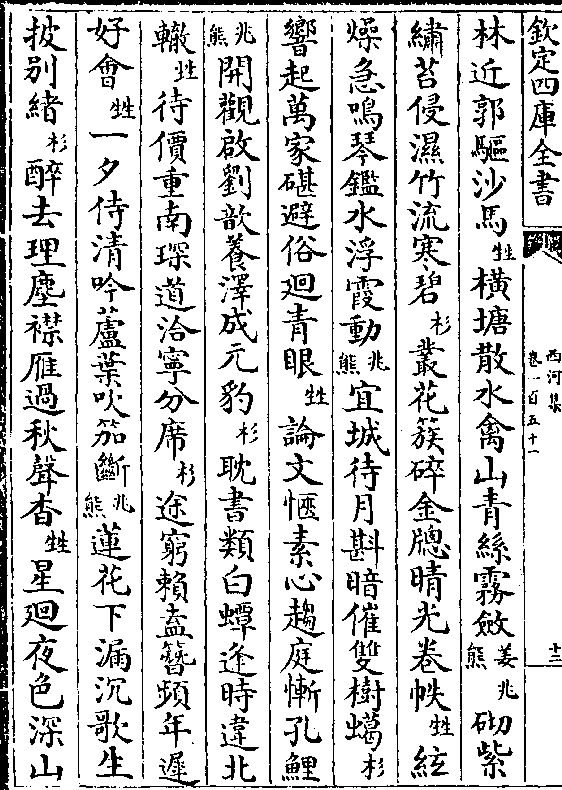 欽定四庫全書
西河集
卷一百五十一
十三
林近郭驅沙馬甡橫塘散水禽山青絲霧斂姜兆熊砌紫
繡苔侵濕竹流寒碧杉叢花簇碎金牕晴光卷帙甡絃
燥急鳴琴鑑水浮霞動兆熊宜城待月斟暗催雙樹蠲杉
響起萬家碪避俗迴青眼甡論文愜素心趨庭慚孔鯉
兆熊開觀啟劉歆養澤成元豹杉耽書類白蟫逢時違北
轍甡待價重南琛道洽寧分席杉途窮賴盍簪頻年遲
好會甡一夕侍清吟蘆葉吹笳斷兆熊蓮花下漏沉歌生
披別緒杉醉去理塵襟雁過秋聲杳甡星迴夜色深山